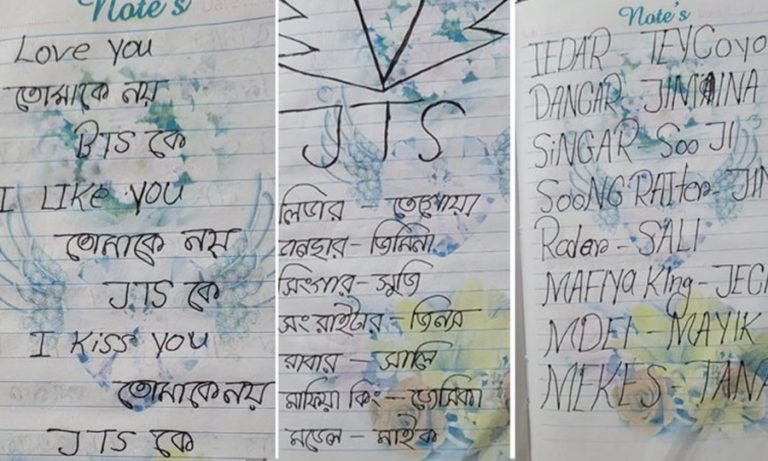 Note's
Love you
তোমাকে নয়
BTS কে
I LIKe you
তোমাকে নয়
JTS কে
I Kiss you
তোমাকে নয়
JTS কে
JTS
লিডার – তেগোয়া
ডানছার – জিমিনা
সিংগার – সুজি
সং রাইটার – জিনর
রাবার – সালি
মাফিয়া কিং – জেসিকা
মডেল – মাইক
Note's
IEDAR – TEYGoyo
DANCAR JINAINA
SiNGAR – Soo JI
SooNG RAIter – JIN
Rader – SALI
MAFIYA King – JECI
MDEl – MAYIK
MEKES – JANA